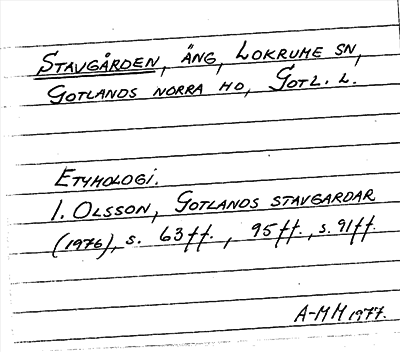 STAVGÅRDEN, ÄNG, LOKRUME SN,
GOTLANDS NORRA HD, GOTL. L.
ETYMOLOGI.
I. OLSSON, GOTLANDS STAVGARDAR
(1976), s. 63ff., 95ff., s. 91ff.
A-MM 1977.